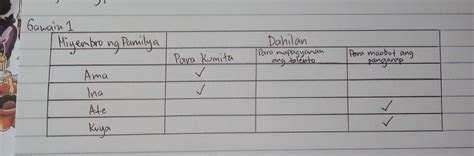 Gawain 1
Miyembro ng Pamilya
Dahilan
Para Kumita
Para mapagyaman
ang talento
Para maabot ang
pangarap
Ama ✓
Ina ✓
Ate ✓
Kuya ✓